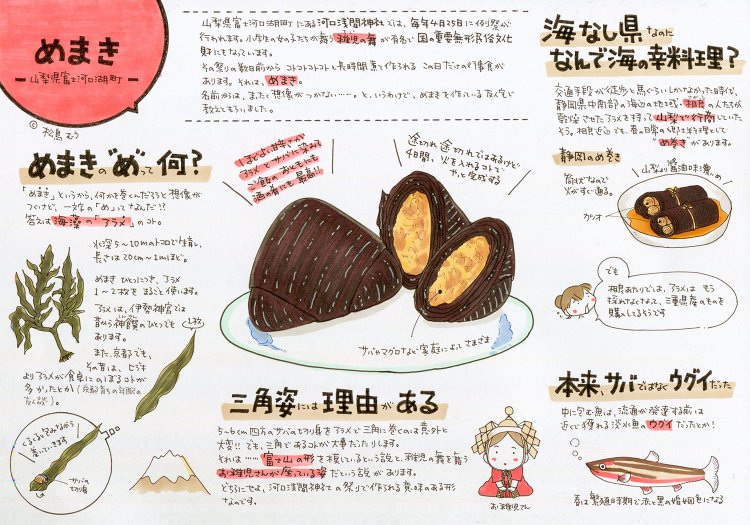 めまき
山梨県富士河口湖町
© 松鳥むう
山梨県富士河口湖町にある河口浅間神社では、毎年4月25日に例祭が
行われます。小学生の女の子たちが舞う稚児の舞が有名で国の重要無形民俗文化
財にもなっています。
その祭りの数日前からコトコトコトコトと長時間煮て作られるこの日だけの行事食が
あります。それは、めまき。
名前からは、まったく想像がつかない……。と、いうわけで、めまきを作っている友人宅で
教えてもらいました。
めまきの"め"って何？
「めまき」というから、何かを巻くんだろうと想像が
つくけど、一文字の「め」ってなんだ!?
答えは海藻の「アラメ」のコト。
水深5〜10mのトコロで生育し、
長さは20cm〜1mほど。
めまきひとつにつき、アラメ
1〜2枚をまるごと使います。
アラメは、伊勢神宮では
昔から神饌のひとつでも
あります。
また、京都でも、
その昔は、ヒジキ
よりアラメが食卓にのぼるコトが
多かったとか(京都育ちの年配の
友人談)。
1枚
くるくる包みながら
巻いていきます
サバの
切り身
ほどよい甘さが
アラメとサバに染みて
ご飯のおともにも
酒の肴にも最高!!
途切れ途切れではあるけど
4日間、火を入れるコトで
やっと完成する
サバやマグロなど家庭によってさまざま
三角姿には理由がある
5〜6cm四方のサバの切り身をアラメで三角に巻くのは意外と
大変!!でも、三角であるコトが大事だったりします。
それは……富士山の形を模しているという説と、稚児の舞を舞う
お稚児さんが座っている姿だという説があります。
どちらにせよ、河口浅間神社の祭りで作られる意味のある形
なのです。
お稚児さん
海なし県なのに
なんで海の幸料理？
交通手段が徒歩と馬ぐらいしかなかった時代、
静岡県中南部の海辺の地域・相良の人たちが
乾燥させたアラメを持って山梨まで行商していた
そう。相良近辺でも、昔の日常の郷土料理として
"め巻き"があります。
静岡のめ巻き
筒状なので
火がすぐ通る。
山梨より醤油味濃いめ
カツオ
でも
相良あたりでは、アラメはもう
採れなくなって、三重県産のものを
購入してるそうです
本来、サバではなくウグイだった
中に包む魚は、流通が発達する前は
近くで獲れる淡水魚の
ウグイだったとか！
春は繁殖時期で赤と黒の婚姻色になる